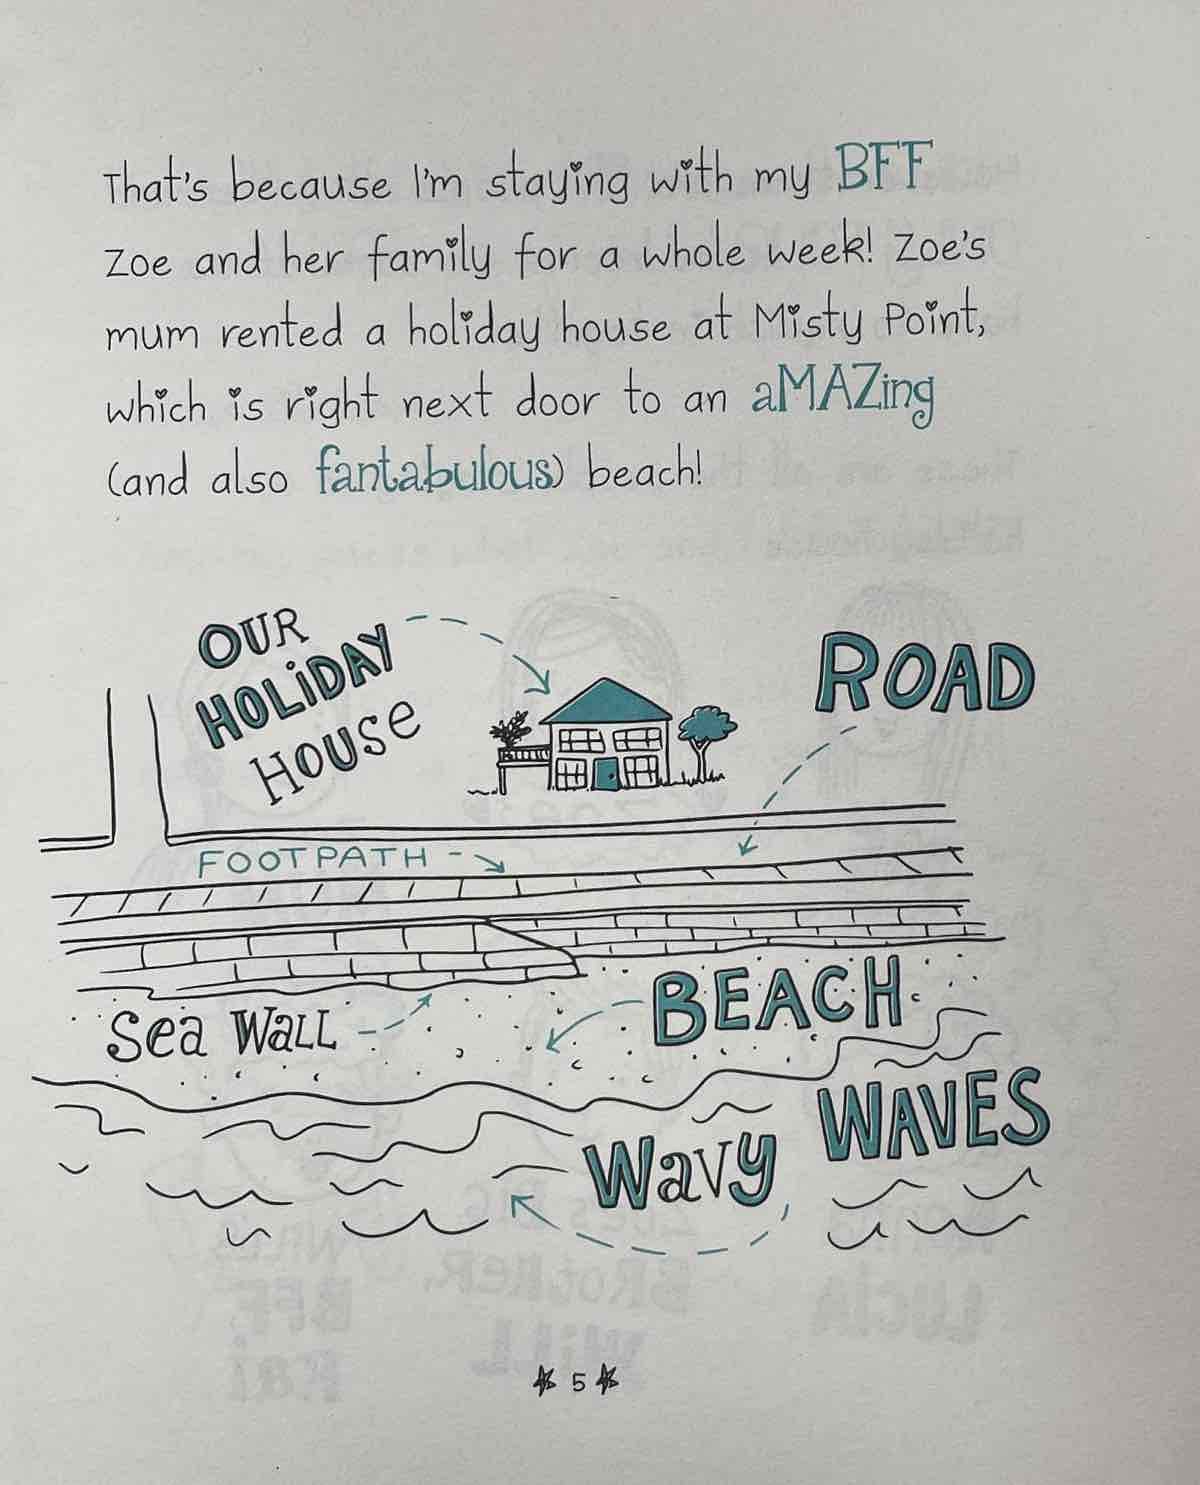 That's because I'm staying with my BFF
Zoe and her family for a whole week! Zoe's
mum rented a holiday house at Misty Point,
which is right next door to an aMAZing
(and also fantabulous) beach!
OUR
HOLiDAY
HOUSe
ROAD
FOOTPATH
Sea WaLL
BEACH
Wavy WAVES
5